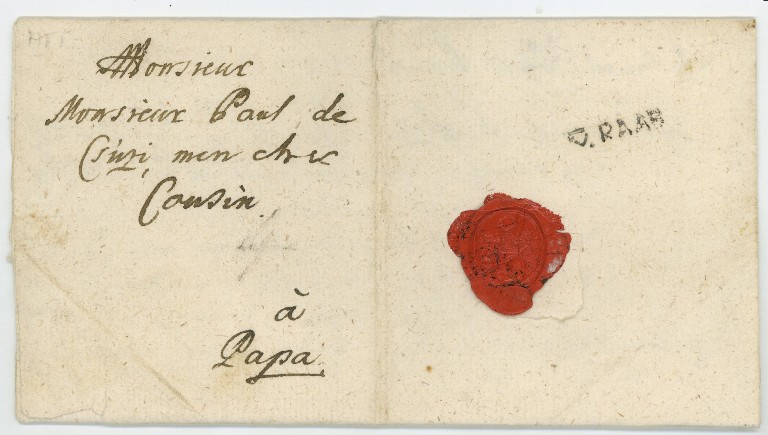 Monsieur
Monsieur Paul de
Csuzi, mon cher
Cousin.
à
Papa.
V. RAAB